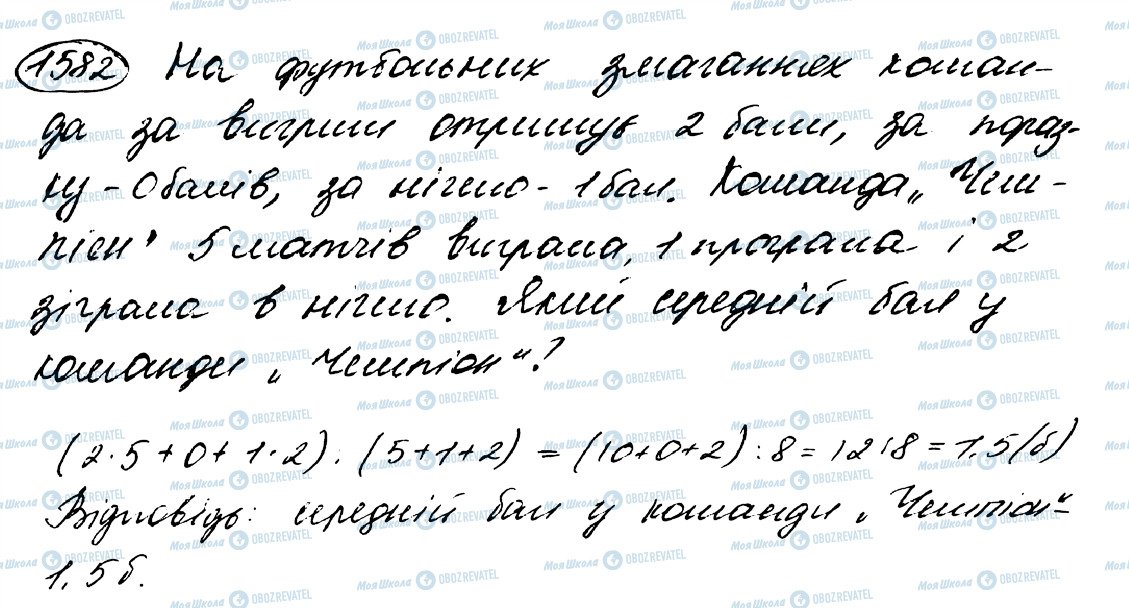 1582 На футбольних змаганнях коман-
да за виграш отримує 2 бали, за пораз-
ку - 0 балів, за нічию - 1 бал. Команда „Чем-
піон" 5 матчів виграла, 1 програла і 2
зіграла в нічию. Який середній бал у
команди „Чемпіон"?
(2·5+0+1·2):(5+1+2) = (10+0+2):8 = 12:8 = 1,5 (б)
Відповідь: середній бал у команди „Чемпіон"-
1,5 б.